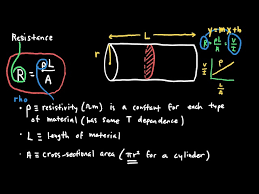 Resistance
R = ρL/A
rho
r
L
A
y = m x + b
R = ρL/A = V/I
V/I
ρ
L/A
• ρ ≡ resistivity (Ω m) is a constant for each type
of material (has some T dependence)
• L ≡ length of material
• A ≡ cross-sectional area (πr² for a cylinder)